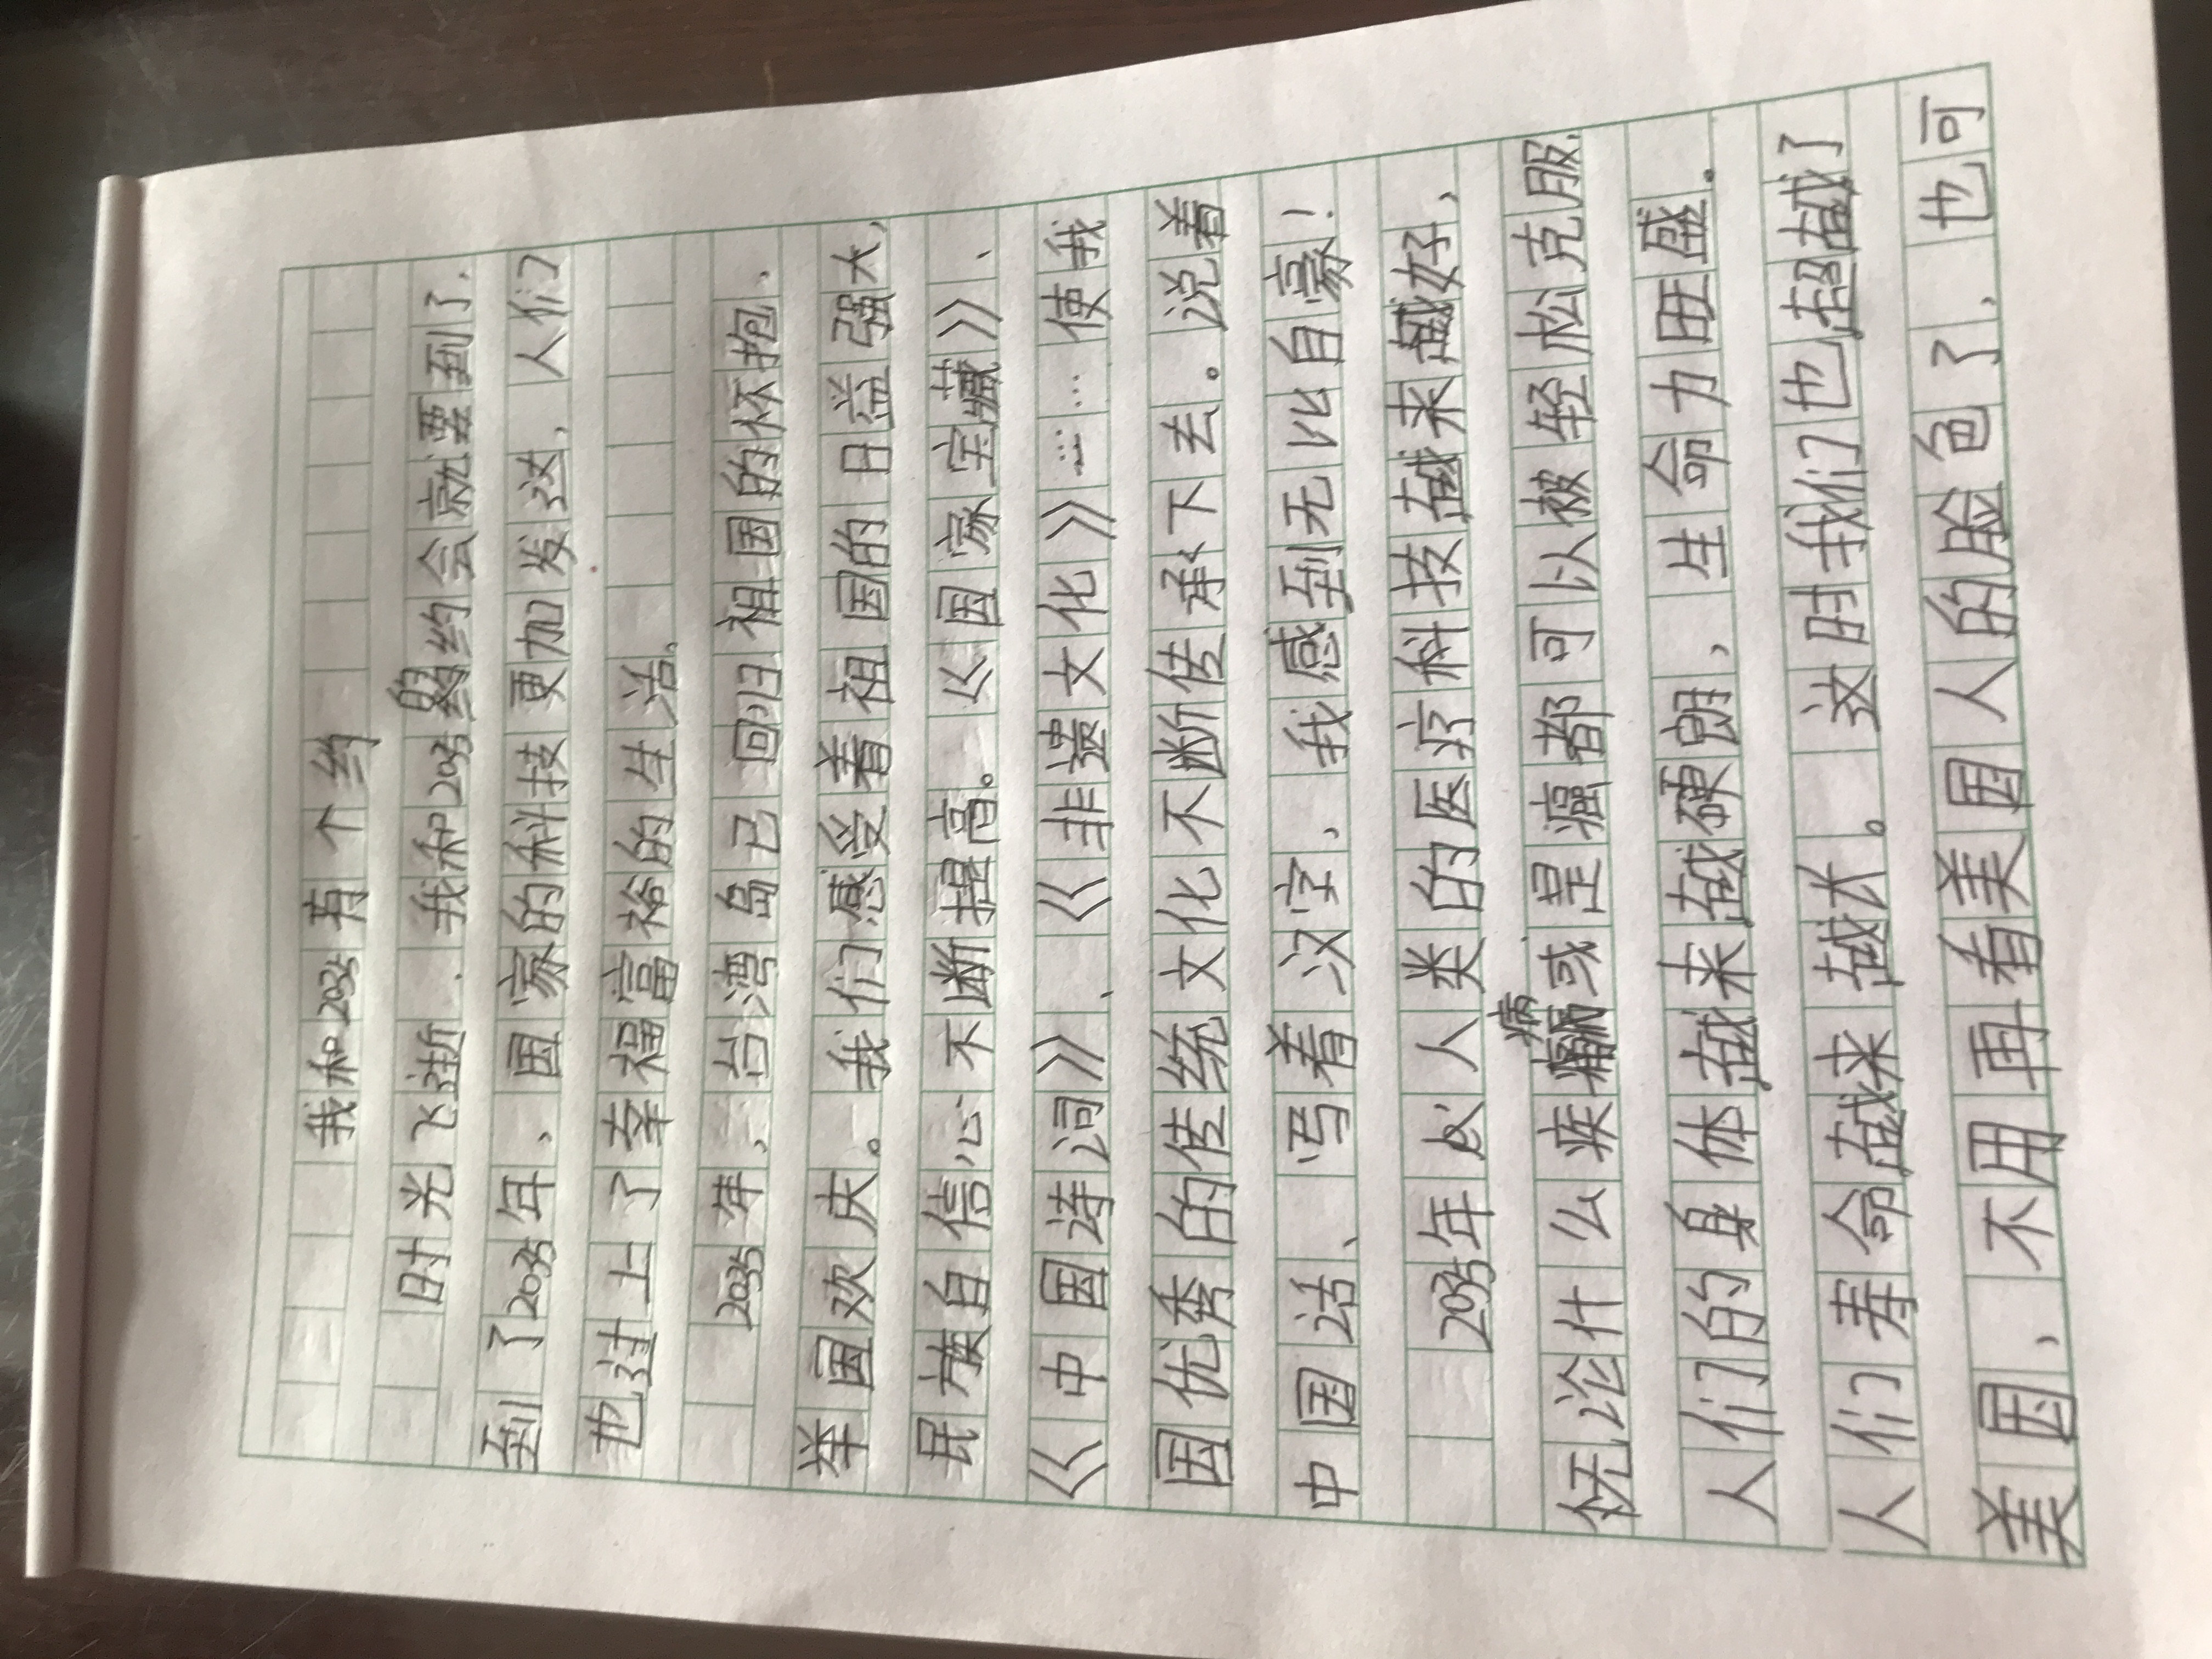 我和2035有个约
时光飞逝，我和2035的约会就要到了，
到了2035年，国家的科技更加发达，人们
也过上了幸福富裕的生活。
2035年，台湾岛已回归祖国的怀抱，
举国欢庆。我们感受着祖国的日益强大，
民族自信心不断提高。《国家宝藏》、
《中国诗词》、《非遗文化》……使我
国优秀的传统文化不断传承下去。说着
中国话、写着汉字，我感到无比自豪！
2035年人类的医疗科技越来越好，
无论什么疾病或是癌都可以被轻松克服，
人们的身体越来越硬朗，生命力旺盛。
人们寿命越来越长。这时我们也超越了
美国，不用再看美国人的脸色了，也可